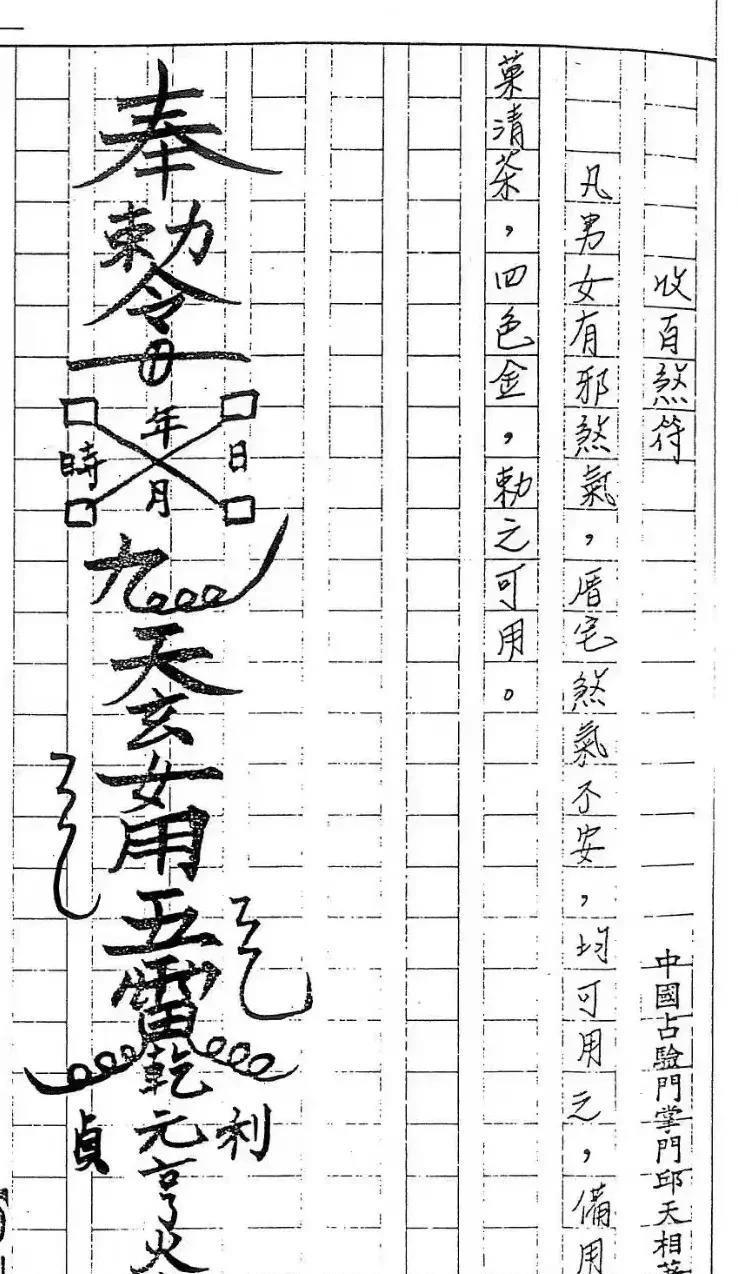 收百煞符
中國占驗門掌門邱天相著
凡男女有邪煞氣，厝宅煞氣不安，均可用之，備用
菓清茶，四色金，勅之可用。
奉
勅令
日
年
時
月
九
天玄女用五雷
乾
利
元亨火
貞